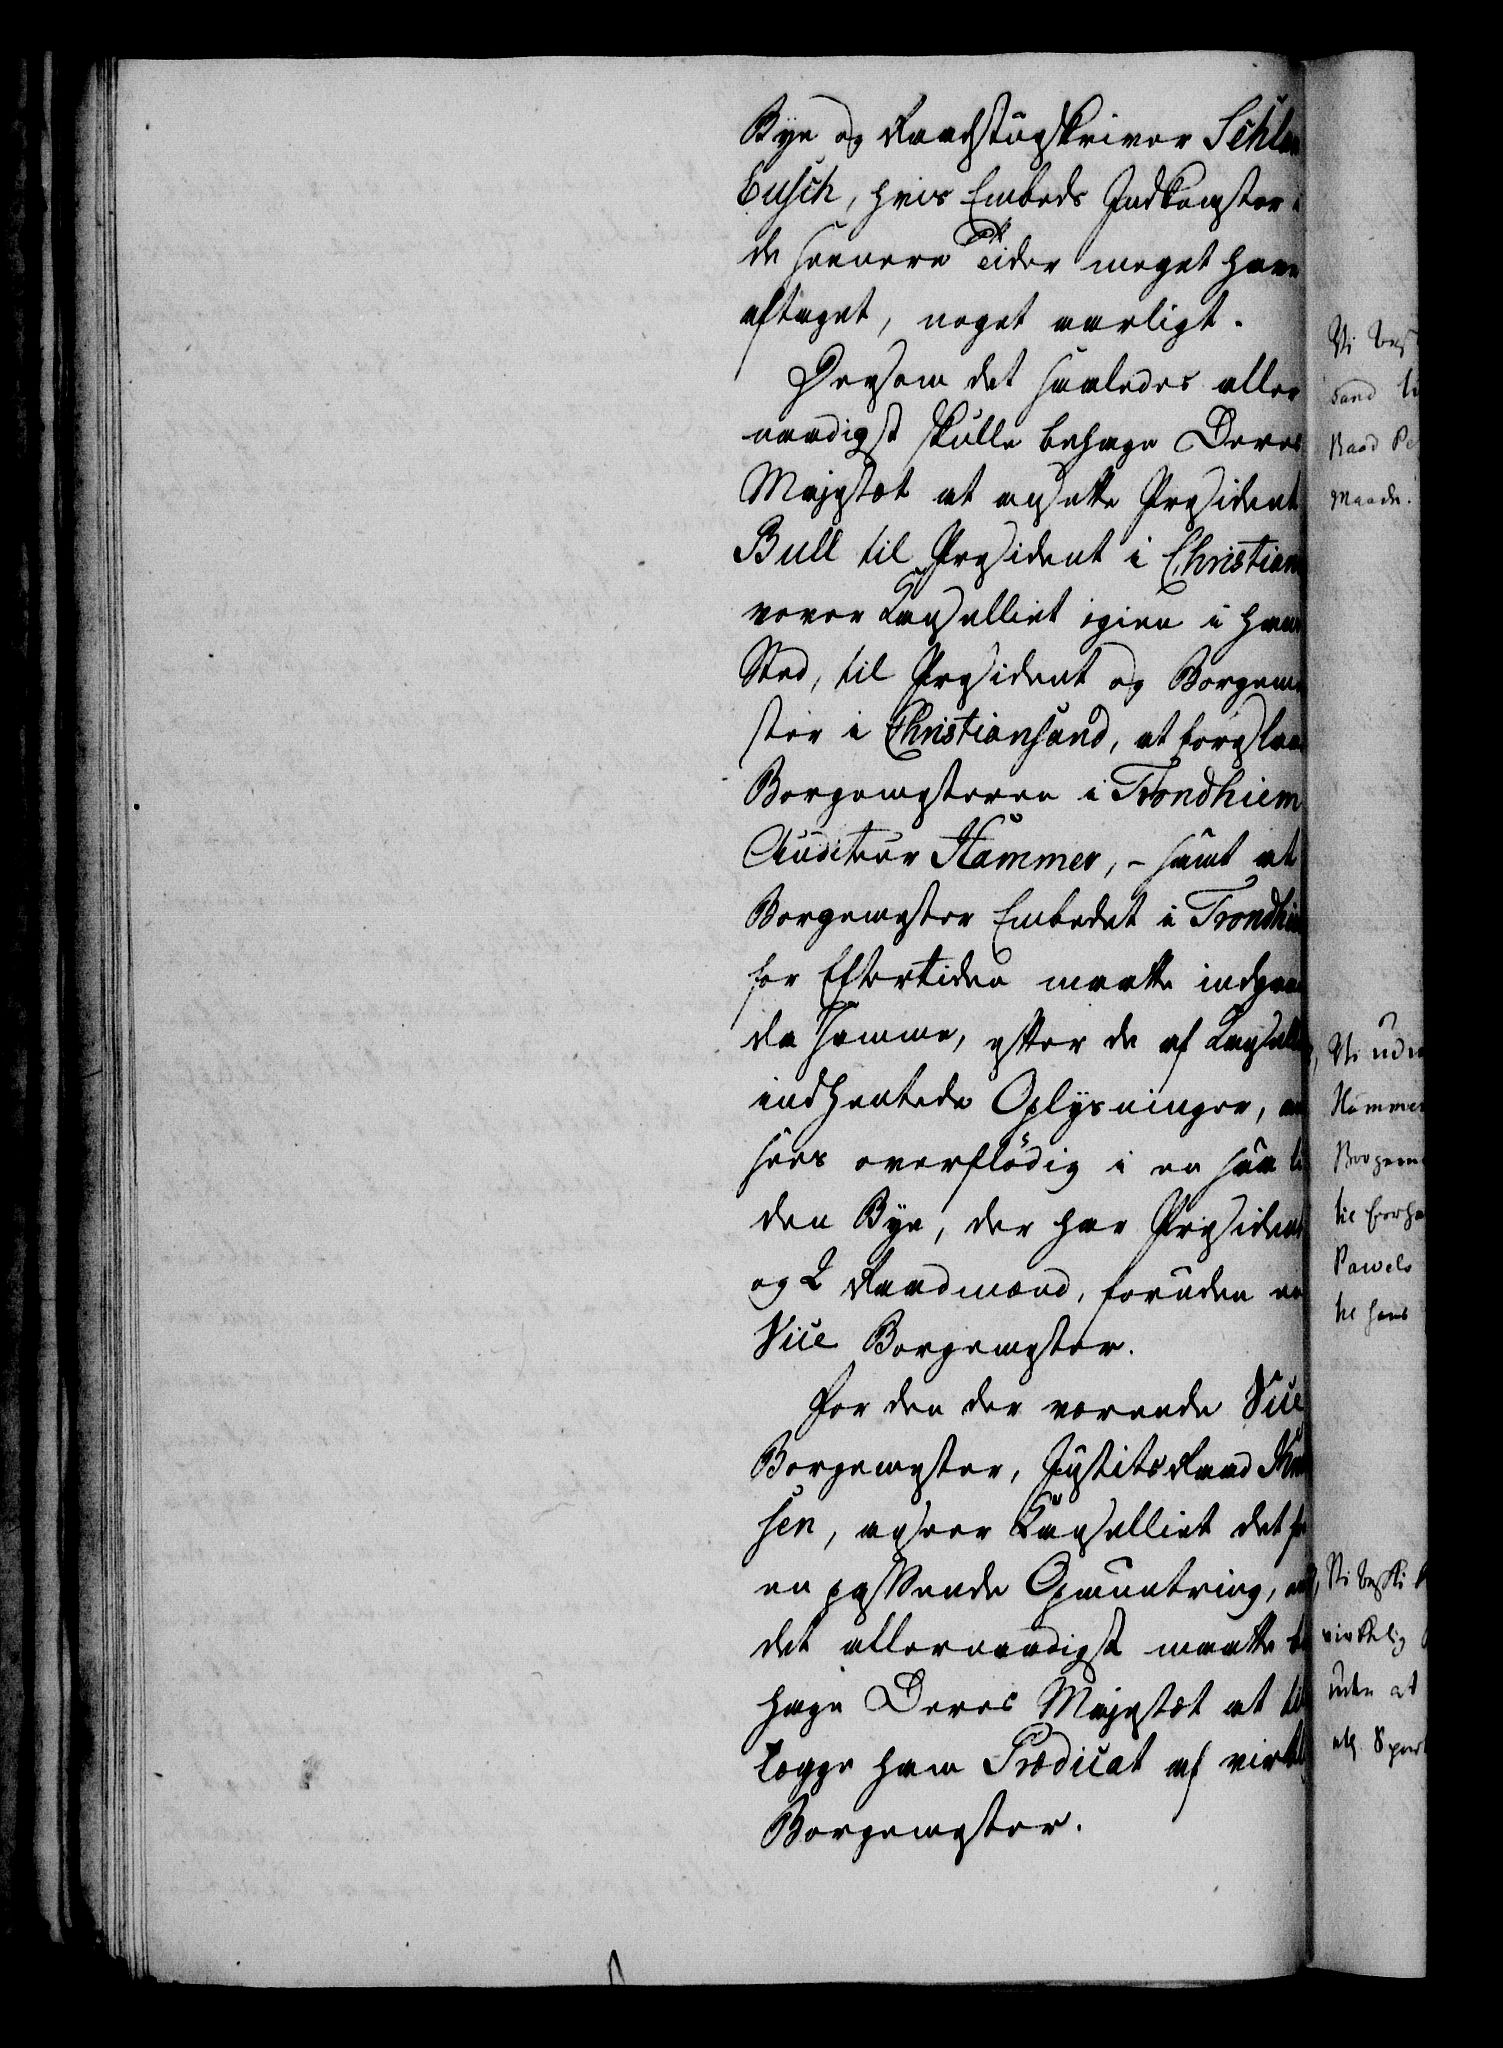 Bye og Raadstueskriver Schlan
busch, hvis Embeds Indkomster i
de seenere Tider meget have
aftaget, noget aarligt.
Dersom det saaledes aller
naadigst skulle behage Deres
Majestæt at ansætte Præsident
Bull til Præsident i Christian
vover Cancelliet igien i hans
Sted, til Præsident og Borgeme
ster i Christiansand, at foreslaae
Borgemesteren i Trondhiem
Auditeur Hammer, - samt at
Borgemester Embedet i Trondhi
for Eftertiden maatte indgaae
da samme, efter de af Cancelli
indhentede Oplysninger, an
sees overflödig i en saa li
den Bye, der har Præsident
og 2 Raadmænd, foruden en
Vice Borgemester.
For den der værende Vice
Borgemester, Justitsraad Kn
sen, anseer Cancelliet det for
en passende Opmuntring, om
det allernaadigst maatte be
hage Deres Majestæt at til
lægge ham Prædicat af virkel
Borgemester.
Vi bes
sand ti
Raad Pe
maade.
Vi udn
Hammer
Borgem
til forh
Pawels
til hans
Vi beski
virkelig
uden at